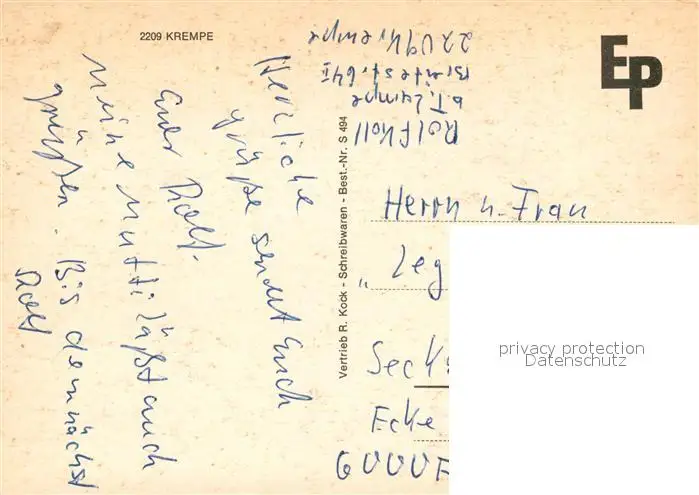 2209 KREMPE
Ep
Rolf Koll
b. T. Lampe
Breitestr. 64 I
2209 Krempe
Vertrieb R. Kock - Schreibwaren - Best.-Nr. S 494
Herzliche
grüße sendet Euch
Euer Rolf.
Meine Mutti läßt auch
grüßen. Bis demnächst
Rolf
Herrn u. Frau
"Leg
Seck
Ecke
6000 F
privacy protection
Datenschutz